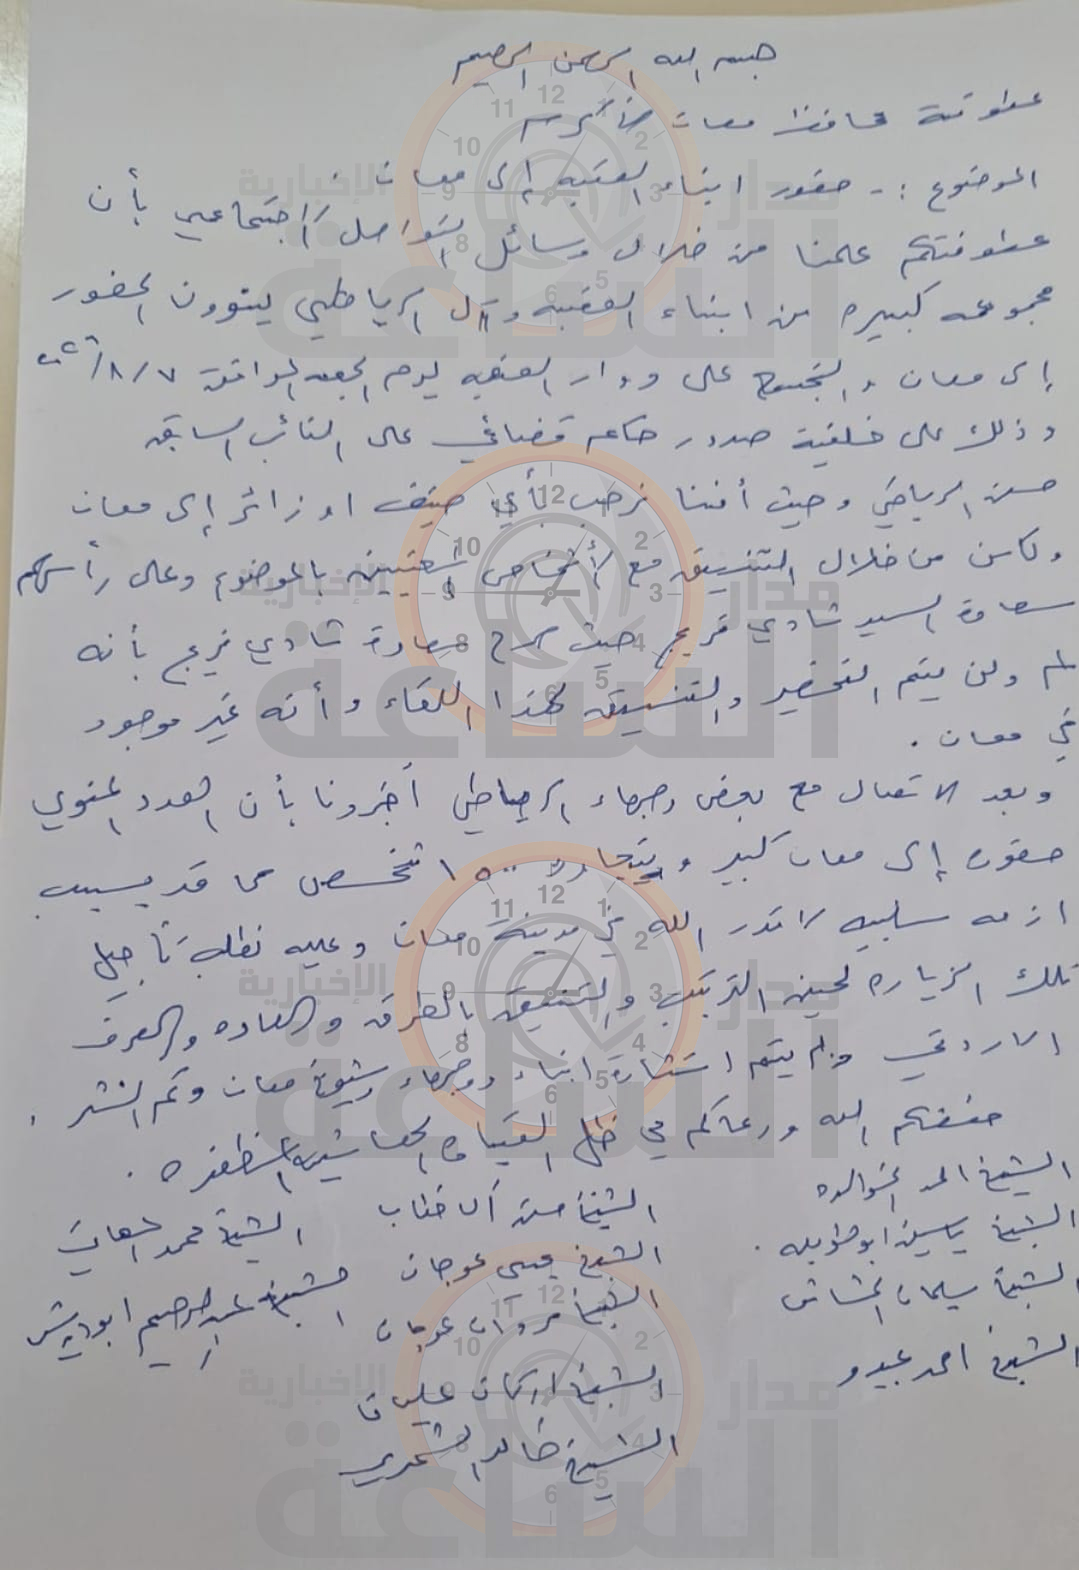 بسم الله الرحمن الرحيم
عطوفة محافظ معان الأكرم
الموضوع :- حضور ابناء العقبه إلى معان .
عطوفتكم علمنا من خلال وسائل التواصل الاجتماعي بأن
مجموعه كبيره من ابناء العقبه وآل الرياطي ينوون الحضور
إلى معان والتجمع على دوار العقبه يوم الجمعه الموافق ٨/٧/
وذلك على خلفية صدور حكم قضائي على النائب السابق
حسن الرياطي وحيث أننا نرحب بأي ضيف او زائر إلى معان
ولكن من خلال التنسيق مع الأشخاص المعنيين بالموضوع وعلى رأسهم
سعادة السيد شادي فريج حيث صرح سعادة شادي فريج بأنه
لم ولن يتم التحضير والتنسيق لهذا اللقاء وأنه غير موجود
في معان .
وبعد الاتصال مع بعض وجهاء الرياطي أخبرونا بأن العدد المنوي
حضوره إلى معان كبير ويتجاوز ١٥٠٠ شخص مما قد يسبب
ازمه سلبيه لا قدر الله في مدينة معان وعليه نطلب تأجيل
تلك الزياره لحين الترتيب والتنسيق بالطرق والعاده والعرف
الاردني ولم يتم استشارة ابناء ووجهاء وشيوخ معان وتم النشر .
حفظكم الله ورعاكم في ظل القيادة الهاشمية المظفره .
الشيخ احمد الخوالده
الشيخ ياسين ابو طويله .
الشيخ سليمان
الشيخ احمد عبيدو
الشيخ حسن آل خطاب
الشيخ يحيى عوجان
الشيخ مروان عوجان
الشيخ اركان عليان
الشيخ خالد الشمري
الشيخ محمد
الشيخ عبد الرحيم ابو درويش
مدار الساعة الإخبارية
مدار الساعة الإخبارية
مدار الساعة الإخبارية
مدار الساعة الإخبارية